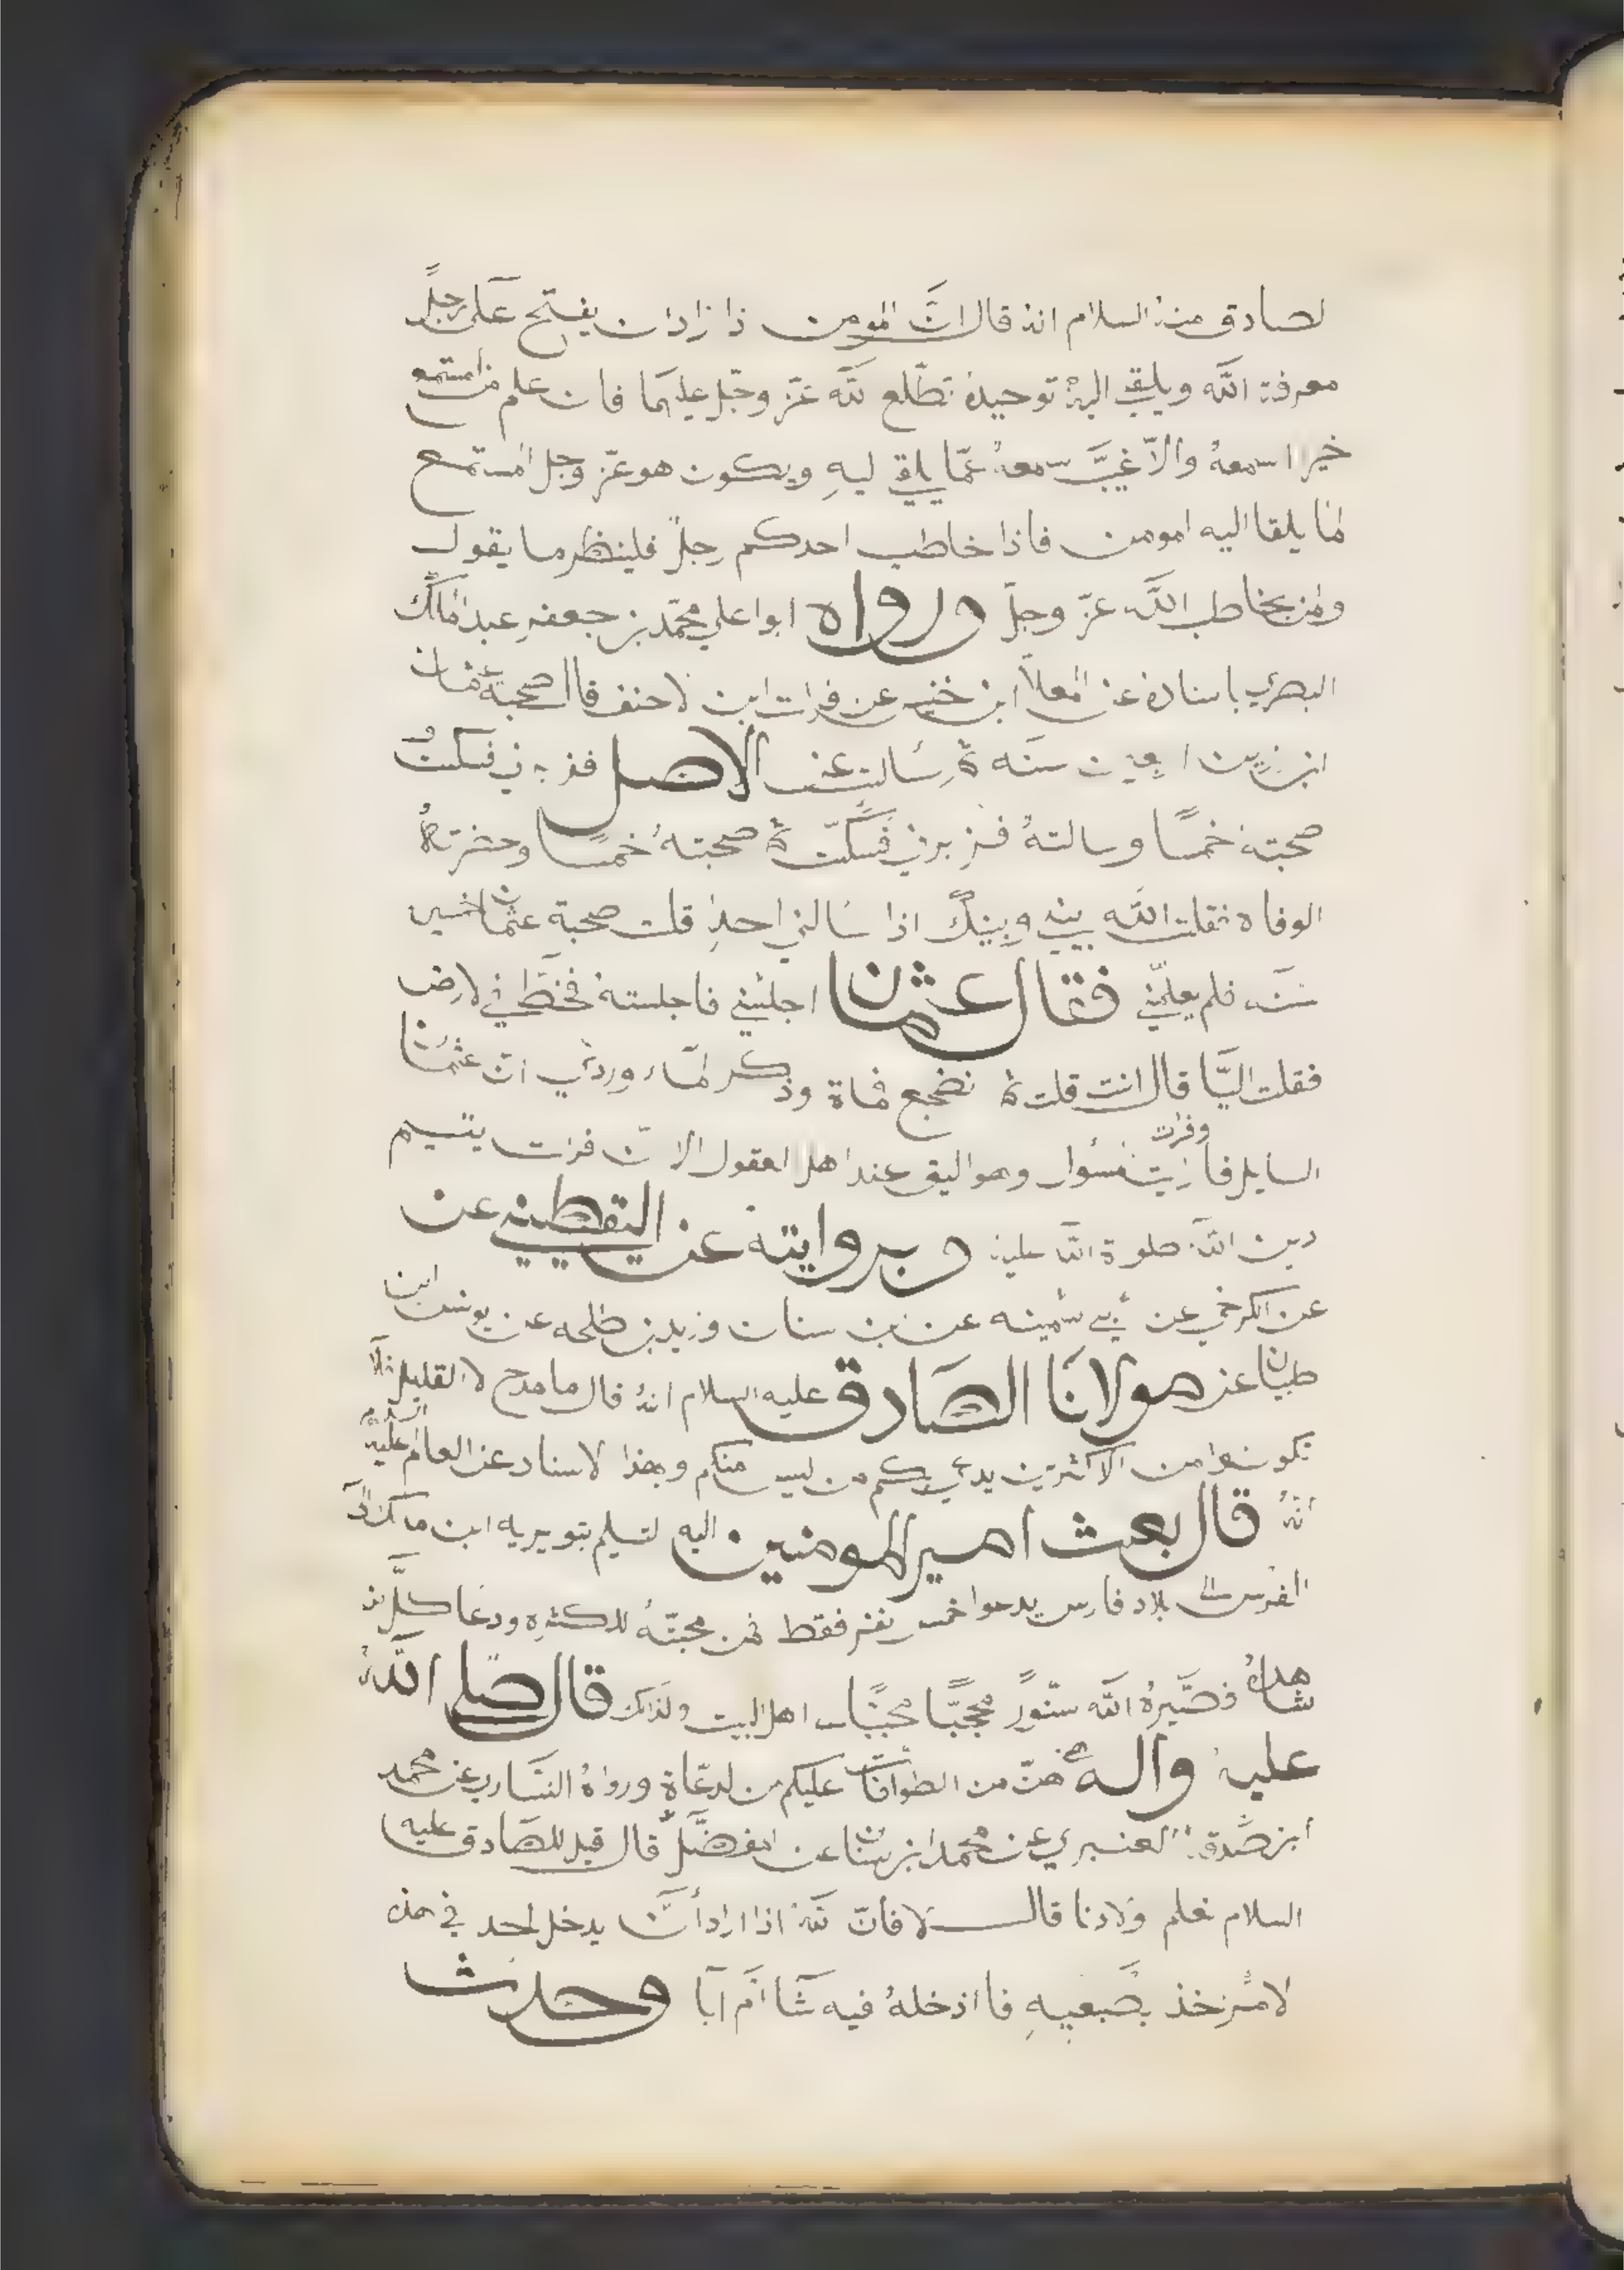 لصادق منه السلام انه قال انَّ المومن ذا اراد ان يفتح على رجلً
معرفة الله ويلقي اليه توحيده تطّلع للّه عزّ وجّل عليهما فان علم من المستمع
خيرا اسمعهُ والاّ غيبَّ سمعهُ عمّا يلقي ليهِ ويكون هو عزّ وجل المستمع
لما يلقا اليه امومن فاذا خاطب احدكم رجلاً فلينظر ما يقول
ومن يخاطب اللَّه عزّ وجلّ ورواه ابوا علي محمّد بن جعفر عبد المالك
البصري باسناده عن المعلاّ ابن خنيس عن فرات ابن لاحنف قال صحبة عثمان
ابن سنه ثم سالت عن الاصل فسكتّ
صحبته خمسًا وسالتهُ فزبرني فسكتّ ثم صحبتهُ خمسا وحضرته
الوفاه فقلت اللّه بيني وبينك اذا سالني احدٍ قلت صحبة عثمان خمسين
سَنَه فلم يعلّمني فقال عثمان اجلسني فاجلسته فخطَّ في لارض
فقلت اليَّا قال انت قلت ثم نضجع فماة وذكر لمّا وردي انّ عثمان
السايل وفرات المسؤل وهو اليق عند اهل العقول الا نّ فرات يتيم
دين اللّه صلوة اللّه عليه وبروايته عن اليقطيني عن
عن الكرخي عن بي سُمينه عن بن سنان وزيد بن طلحه عن يونس ابن
ظبيان عن مولانَا الصَادق عليه السلام انهُ قال ما مدح لا القليل فلا
تكونوا من الاكثرين يدي بكم من ليس منكم وبهذا لاسناد عن العالم عليه السلام
انّهُ قال بعث امير المومنين اليه لتسليم
الفرس الى بلاد فارس يدعوا خمس نفر فقط فمن محبتّهُ للكثره ودعا كلّ من
شاهدهُ فصيّرهُ اللّه سنّورً محجبّا محبًّا اهل البيت ولذالك قال صلى اللَّهُ
عليه واله هنّ من الطوافات عليكم من لدعّاة ورواهُ النسّاب عن محمد
ابن صَدقه العنبري عن محمد ابن سنان عن المفضّل قال قيل للصَادق عليه
السلام نعلم ولادنا قال لا فانّ للّه اذا اراد أنَّ يدخل احد في هذه
لامر خذ بضبعيهِ فا ادخلهُ فيه شَا امَ ابَا وحدث